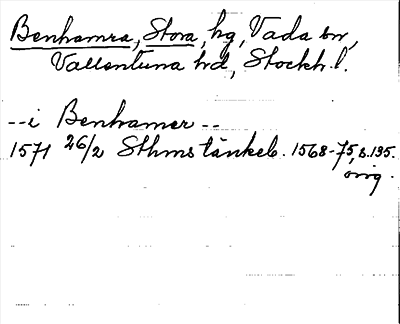 Benhamra, Stora, hg, Vada sn,
Vallentuna hd, Stockh. l.
--i Benhamer--
1571 26/2 Sthms tänkeb. 1568-75, s. 135.
orig.